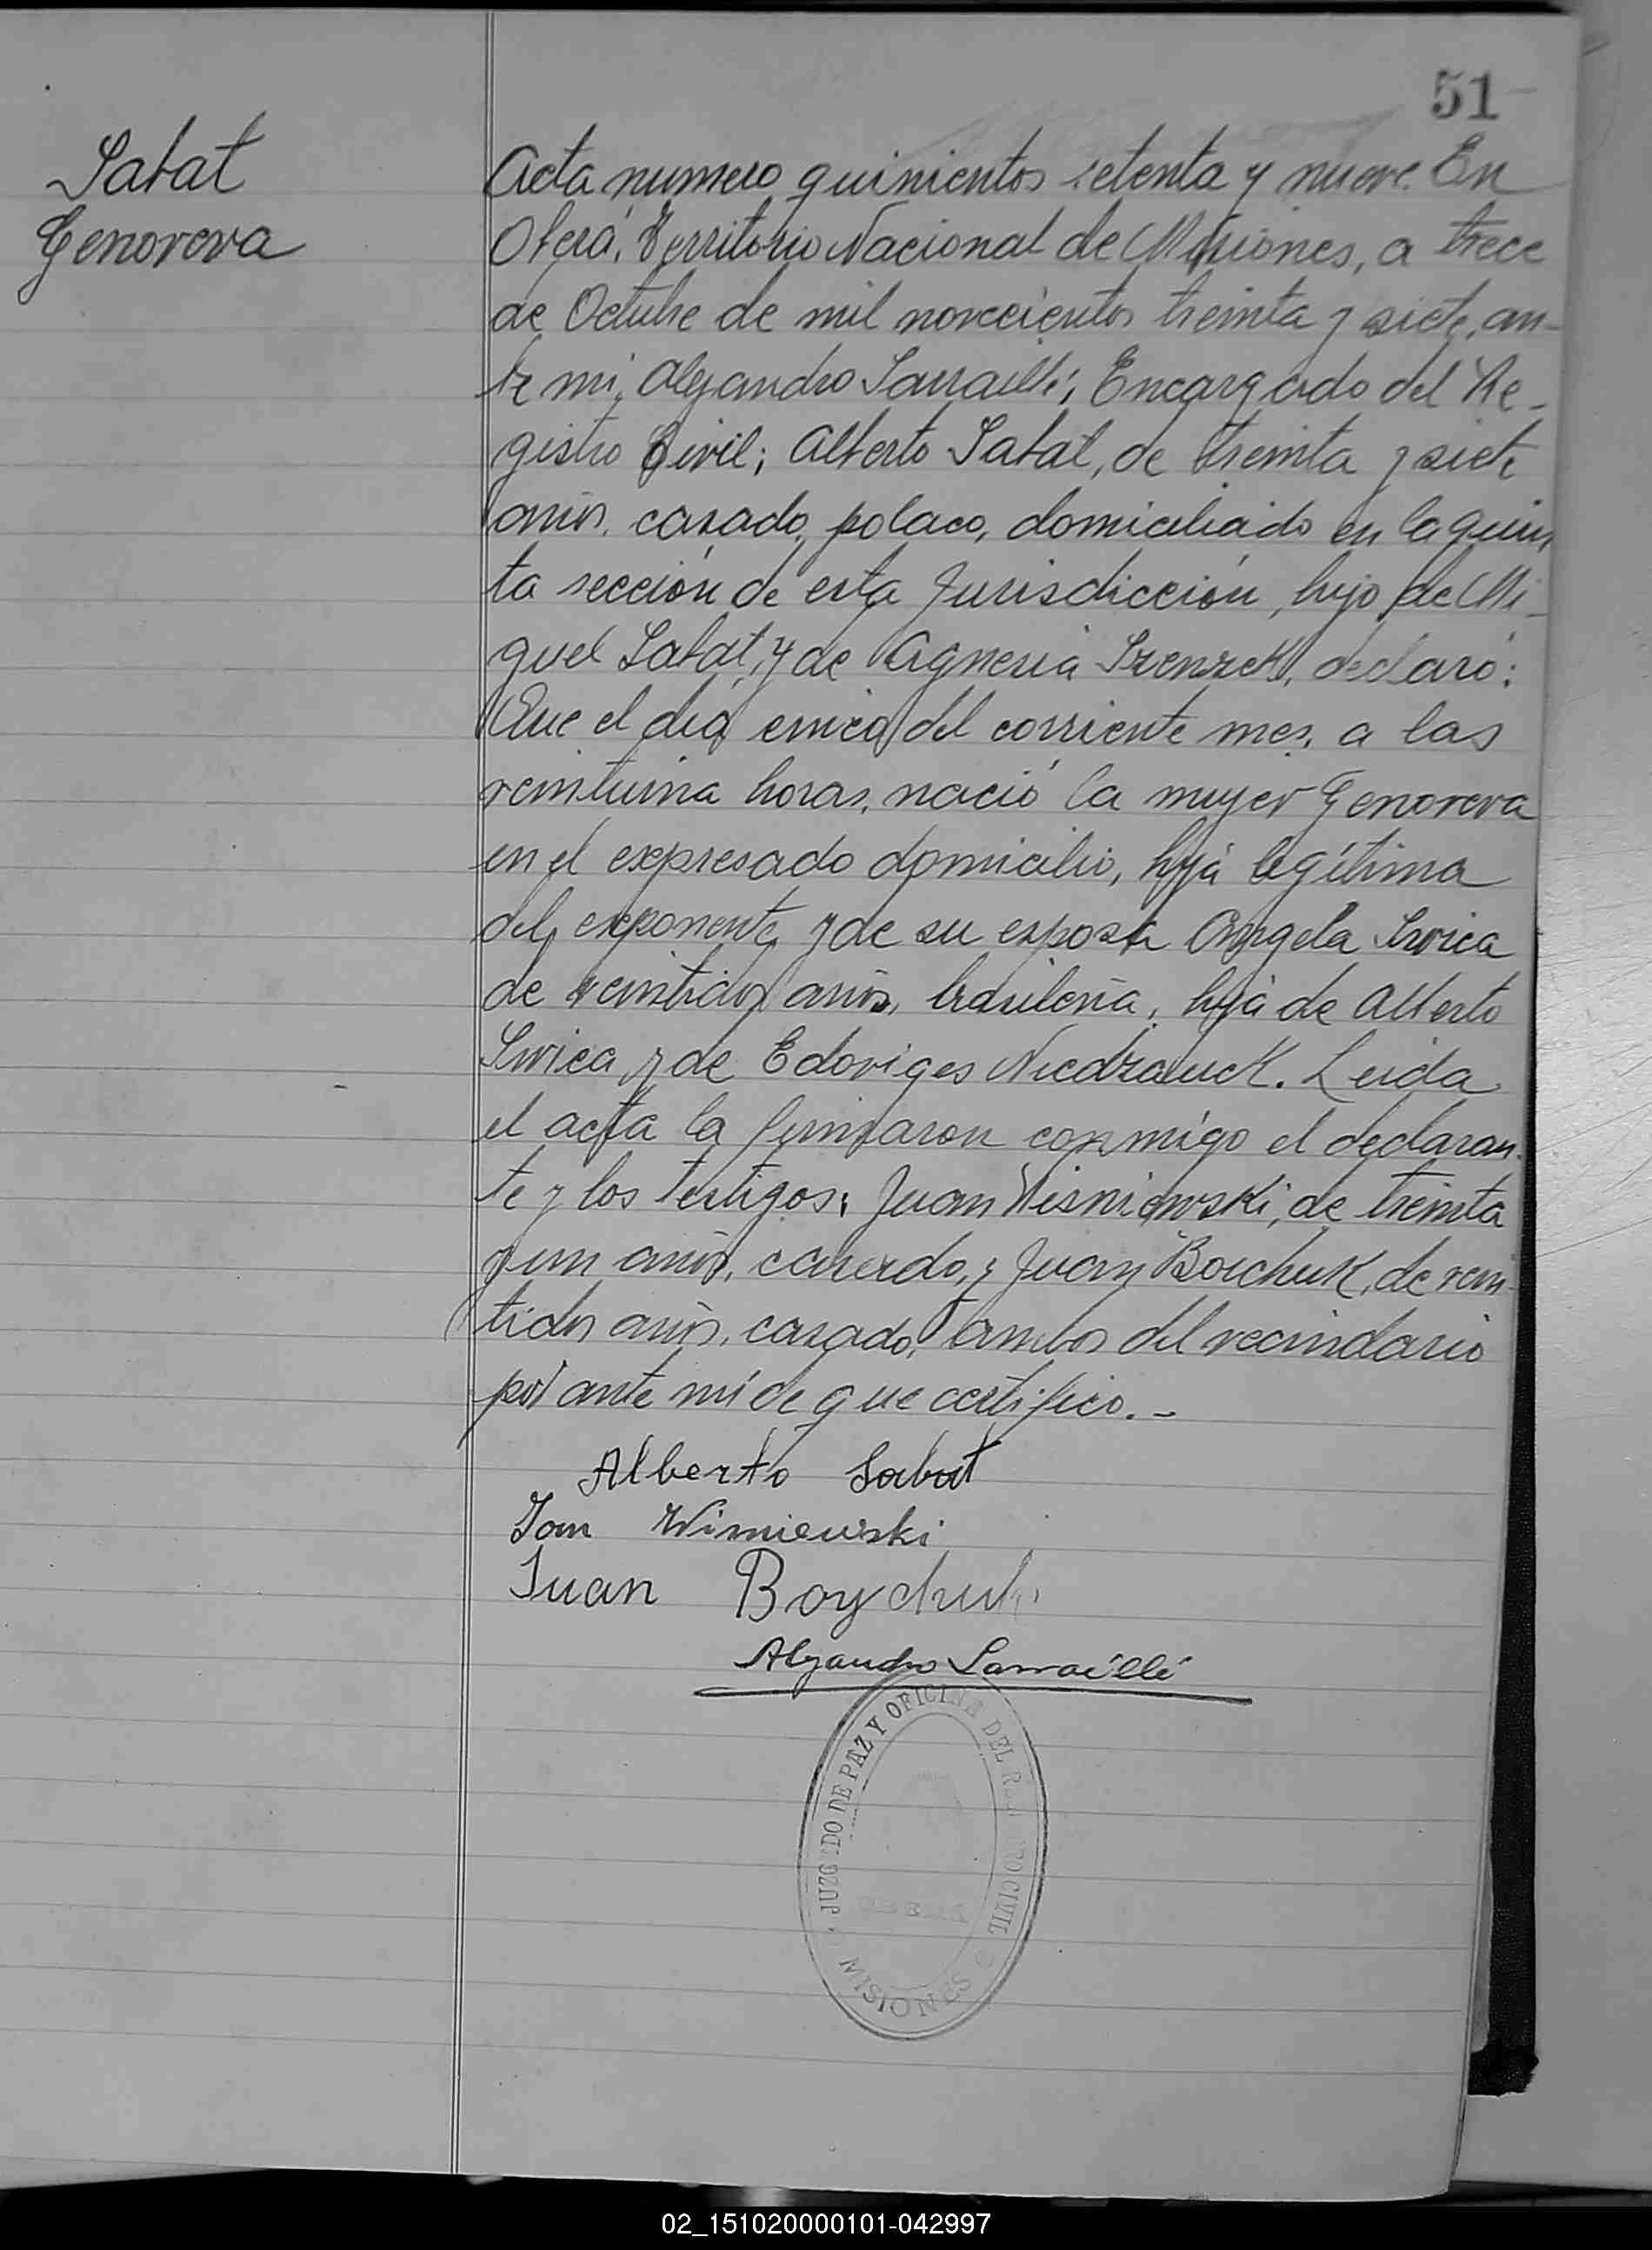 51
Sabat
Genoveva
Acta numero quinientos setenta y nueve. En
Oberá, Territorio Nacional de Misiones, a trece
de Octubre de mil novecientos treinta y siete, an-
te mí, Alejandro Sarraillé, Encargado del Re-
gistro Civil; Alberto Sabat, de treinta y siete
años, casado, polaco, domiciliado en la quin
ta sección de esta Jurisdicción, hijo de Mi-
guel Sabat, y de Agnesia declaró:
Que el dia cinco del corriente mes, a las
veintiuna horas, nació la mujer Genoveva
en el expresado domicilio, hija legítima
del exponente y de su esposa Angela Swica
de veintidos años, brasileña, hija de Alberto
Swica y de Edoviges Leida
el acta la firmaron conmigo el declaran-
te y los testigos: Juan Wisniewski, de treinta
y un años, casado, y Juan Boichuk, de vein-
tidos años, casado, ambos del vecindario
por ante mí de que certifico.-
Alberto Sabat
Jan Wisniewski
Juan Boychuk
Alejandro Sarraillé
JUZGADO DE PAZ Y OFICINA DEL REGISTRO CIVIL
OBERA
MISIONES
02_151020000101-042997